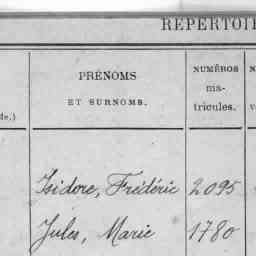 RÉPERTOI
PRÉNOMS
ET SURNOMS.
NUMÉROS
ma-
tricules.
de.)
Isidore, Frédéric 2095
Jules, Marie 1780